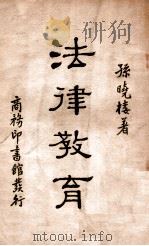 孫曉樓著
法律教育
商務印書館發行